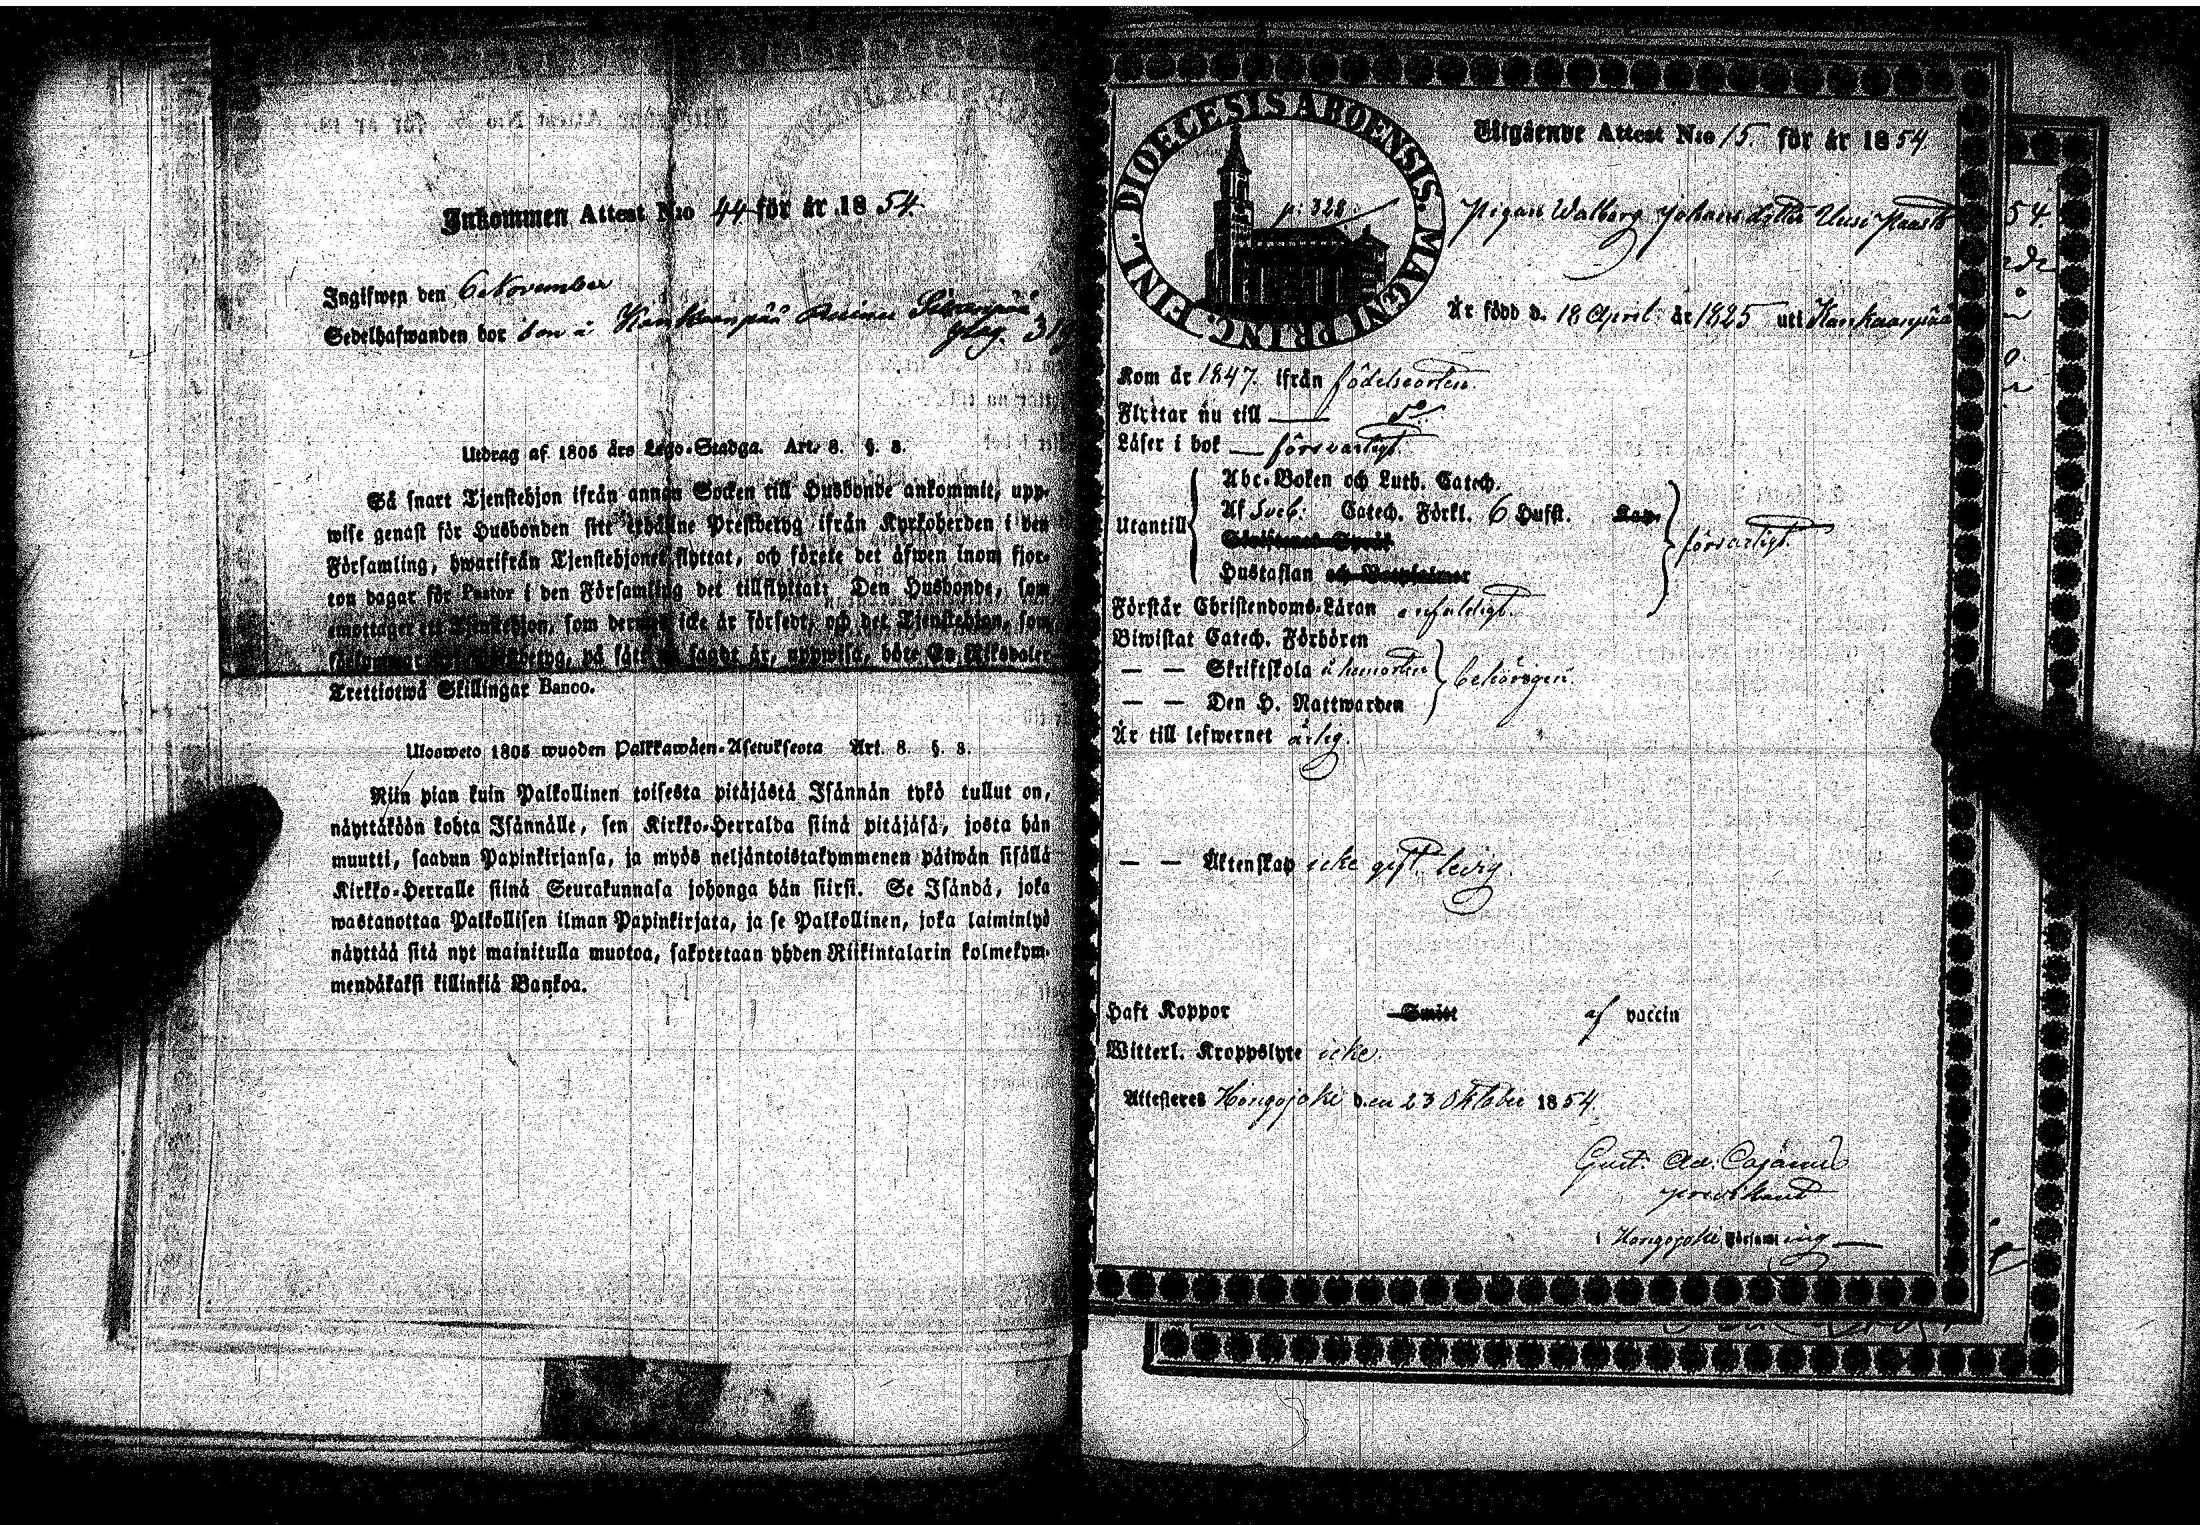 Inkommen Attest N:o 44 för år 1854.
Ingifwen den 6 November
Sedelhafwanden bor
Utdrag af 1805 års Lego-Stadga. Art. 8. §. 8.
Så snart Tjenstehjon ifrån annan Socken till Husbonde ankommit, upp-
wise genast för Husbonden sitt erhållne Prestbetyg ifrån Kyrkoherden i den
Församling, hwarifrån Tjenstehjonet flyttat, och förete det äfwen inom fjor-
ton dagar för Pastor i den Församling det tillflyttat; Den Husbonde, som
emottager ett Tjenstehjon, som dermed icke är försedt, och det Tjenstehjon, som
Prestbetyg, på sätt sagdt är, uppwisa, böte En Riksdaler
Trettiotwå Skillingar Banco.
Ulosweto 1805 wuoden Palkkawäen-Asetuksesta Art. 8. §. 8.
Niin pian kuin Palkollinen toisesta pitäjästä Isännän tykö tullut on,
näyttäköön kohta Isännälle, sen Kirkko-Herralda siinä pitäjäsä, josta hän
muutti, saadun Papinkirjansa, ja myös neljäntoistakymmenen päiwän sisällä
Kirkko-Herralle siinä Seurakunnasa johonga hän siirsi. Se Isändä, joka
wastanottaa Palkollisen ilman Papinkirjata, ja se Palkollinen, joka laiminlyö
näyttää sitä nyt mainitulla muotoa, sakotetaan yhden Riikintalarin kolmekym-
mendäkaksi killinkiä Bankoa.
DIOECESIS ABOENSIS. MAGNI PRINC. FINL.
p: 328
Utgående Attest N:o 15. för år 1854.
Pigan Walborg Johansdotter Uusi
Är född d. 18 April år 1825 uti Kankaanpää
Kom år 1847. ifrån födelseorten.
Flyttar nu till — do.
Läser i bok — försvarligt.
Utantill
Abc-Boken och Luth. Catech.
Af Sveb: Catech. Förkl. 6 Hufst.
Hustaflan
försvarligt.
Förstår Christendoms-Läran enfaldigt.
Biwistat Catech. Förhören
— — Skriftskola å hemorten
— — Den H. Nattwarden
behörigen.
Är till lefwernet ärlig.
— — Äktenskap icke gift. ledig.
Haft Koppor Smitt af vaccin
Witterl. Kroppslyte icke.
Attesteres Hongojoki den 23 Oktober 1854.
Gust. Ad. Cajanus
i Hongojoki Församling